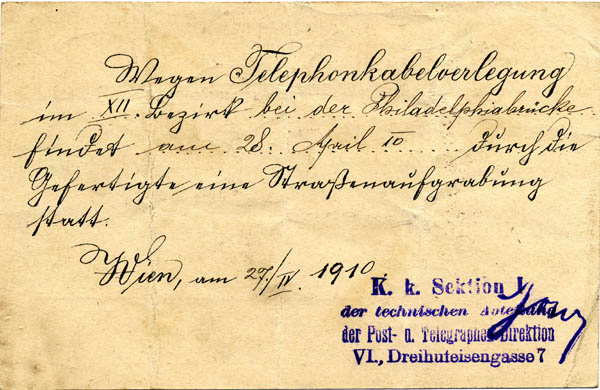 Wegen Telephonkabelverlegung
im XII. Bezirk bei der Philadelphiabrücke
findet am 28. April 10 durch die
Gefertigte eine Straßenaufgrabung
statt.
Wien, am 27./IV. 1910
K. k. Sektion I
der technischen Abteilung
der Post- u. Telegraphen-Direktion
VI., Dreihufeisengasse 7